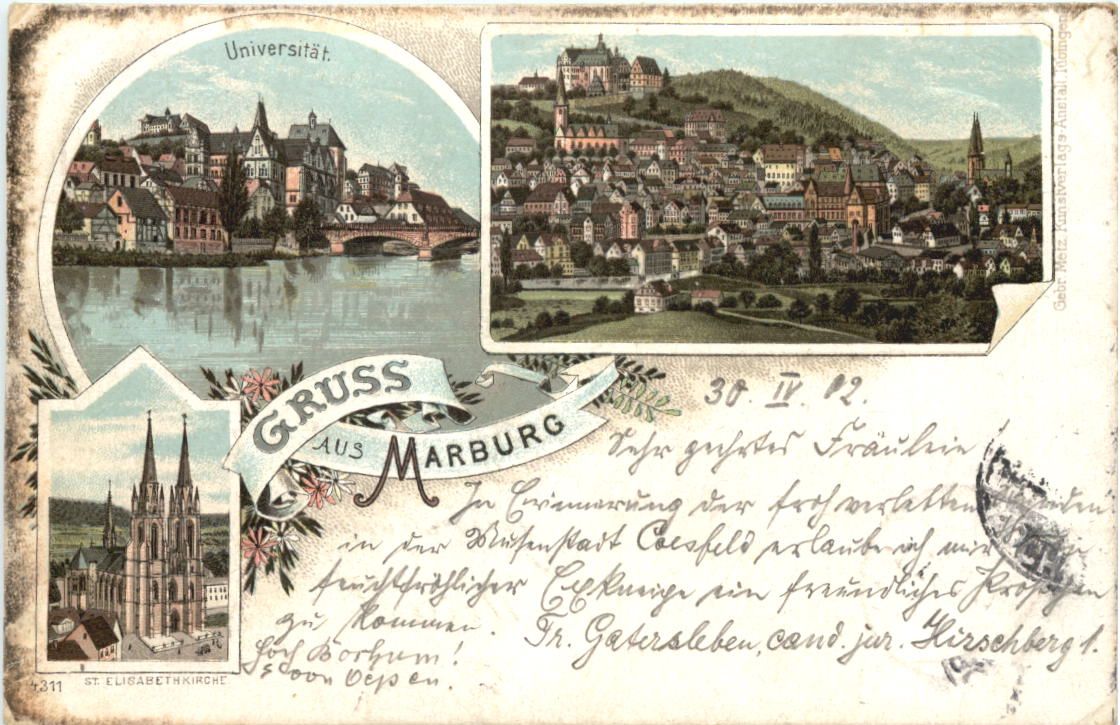 Universität.
GRUSS
AUS
MARBURG
Gebr. Metz, Kunstverlags-Anstalt, Tübingen
30. IV. 02.
Sehr geehrtes Fräulein!
In Erinnerung der froh verlebten Stunden
in der Musenstadt Coesfeld erlaube ich mir
feuchtfröhlicher Exkneipe ein freundliches Pröstchen
zu kommen. Fr. Gatersleben, cand. jur. Hirschberg 1.
Hoch Bochum!
4311
ST. ELISABETHKIRCHE